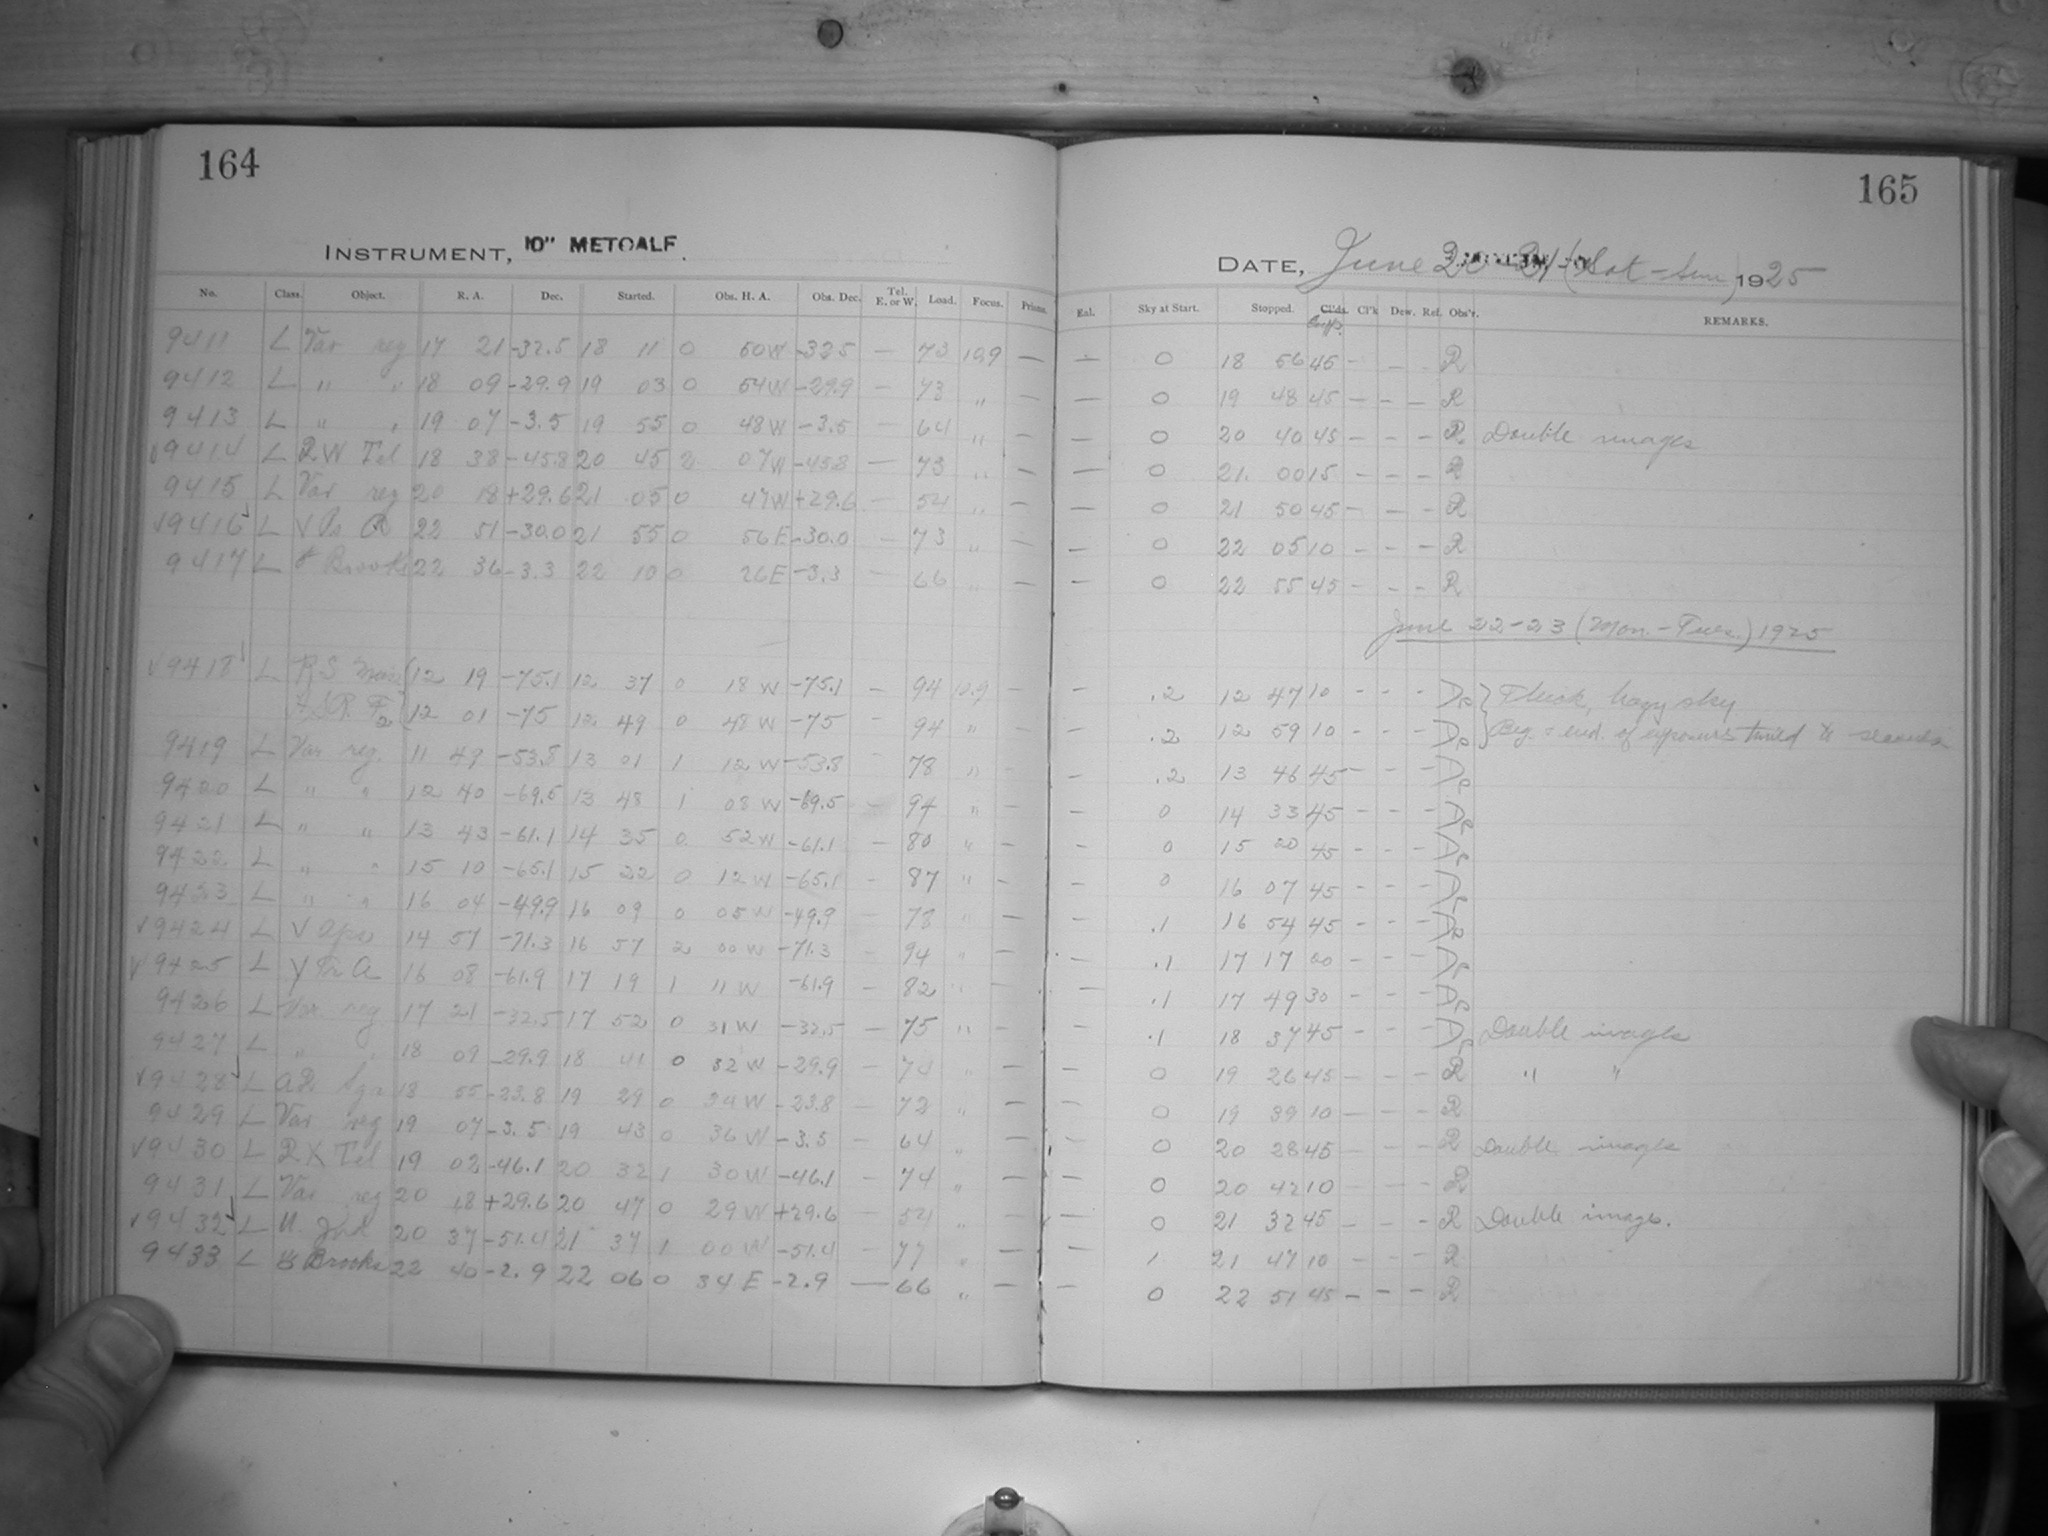 164
INSTRUMENT, 10" METCALF.
No. Class. Object. R. A. Dec. Started. Obs. H. A. Obs. Dec. Tel. E. or W. Load. Focus. Prisms.
9411 L Var reg 17 21 -32.5 18 11 0 50W -32.5 — 73 10.9 —
9412 L " " 18 09 -29.9 19 03 0 54W -29.9 — 73 " —
9413 L " " 19 07 -3.5 19 55 0 48W -3.5 — 64 " —
9414 L RW Tel 18 38 -45.8 20 45 2 07W -45.8 — 73 " —
9415 L Var reg 20 18 +29.6 21 05 0 47W +29.6 — 54 " —
√9416 L V Ps A 22 51 -30.0 21 55 0 56E -30.0 — 73 " —
9417 L Brooks 22 36 -3.3 22 10 0 26E -3.3 — 66 " —
√9418 L RS 12 19 -75.1 12 37 0 18W -75.1 — 94 10.9 —
12 01 -75 12 49 0 48W -75 — 94 " —
9419 L Var reg. 11 49 -53.8 13 01 1 12W -53.8 — 78 " —
9420 L " " 12 40 -69.5 13 48 1 08W -69.5 — 94 " —
9421 L " " 13 43 -61.1 14 35 0 52W -61.1 — 80 " —
9422 L " " 15 10 -65.1 15 22 0 12W -65.1 — 87 " —
9423 L " " 16 04 -49.9 16 09 0 05W -49.9 — 78 " —
√9424 L V Aps 14 57 -71.3 16 57 2 00W -71.3 — 94 " —
√9425 L Y Tr A 16 08 -61.9 17 19 1 11W -61.9 — 82 " —
9426 L Var reg 17 21 -32.5 17 52 0 31W -32.5 — 75 " —
9427 L " " 18 09 -29.9 18 41 0 32W -29.9 — 74 " —
√9428 L Sgr 18 55 -23.8 19 29 0 34W -23.8 — 72 " —
9429 L Var reg 19 07 -3.5 19 43 0 36W -3.5 — 64 " —
√9430 L RX Tel 19 02 -46.1 20 32 1 30W -46.1 — 74 " —
9431 L Var reg 20 18 +29.6 20 47 0 29W +29.6 — 54 " —
√9432 L U. Ind 20 37 -51.4 21 37 1 00W -51.4 — 77 " —
9433 L Brooks 22 40 -2.9 22 06 0 34E -2.9 — 66 " —
165
DATE, June 20-21 (Sat-Sun) 1925
Eal. Sky at Start. Stopped. Cl'ds. Cl'k Dew. Ref. Obs'r. REMARKS.
— 0 18 56 45 — — — R
— 0 19 48 45 — — — R
— 0 20 40 45 — — — R Double images
— 0 21. 00 15 — — — R
— 0 21 50 45 — — — R
— 0 22 05 10 — — — R
— 0 22 55 45 — — — R
June 22-23 (Mon.-Tues.) 1925
— .2 12 47 10 — — — Thick, hazy sky
— .2 12 59 10 — — — Beg. & end. of exposures timed to seconds
— .2 13 46 45 — — —
— 0 14 33 45 — — —
— 0 15 20 45 — — —
— 0 16 07 45 — — —
— .1 16 54 45 — — —
— .1 17 17 00 — — —
— .1 17 49 30 — — —
— .1 18 37 45 — — — Double images
— 0 19 26 45 — — — R " "
— 0 19 39 10 — — — R
— 0 20 28 45 — — — R Double images
— 0 20 42 10 — — — R
— 0 21 32 45 — — — R Double image.
— 1 21 47 10 — — — R
— 0 22 51 45 — — — R